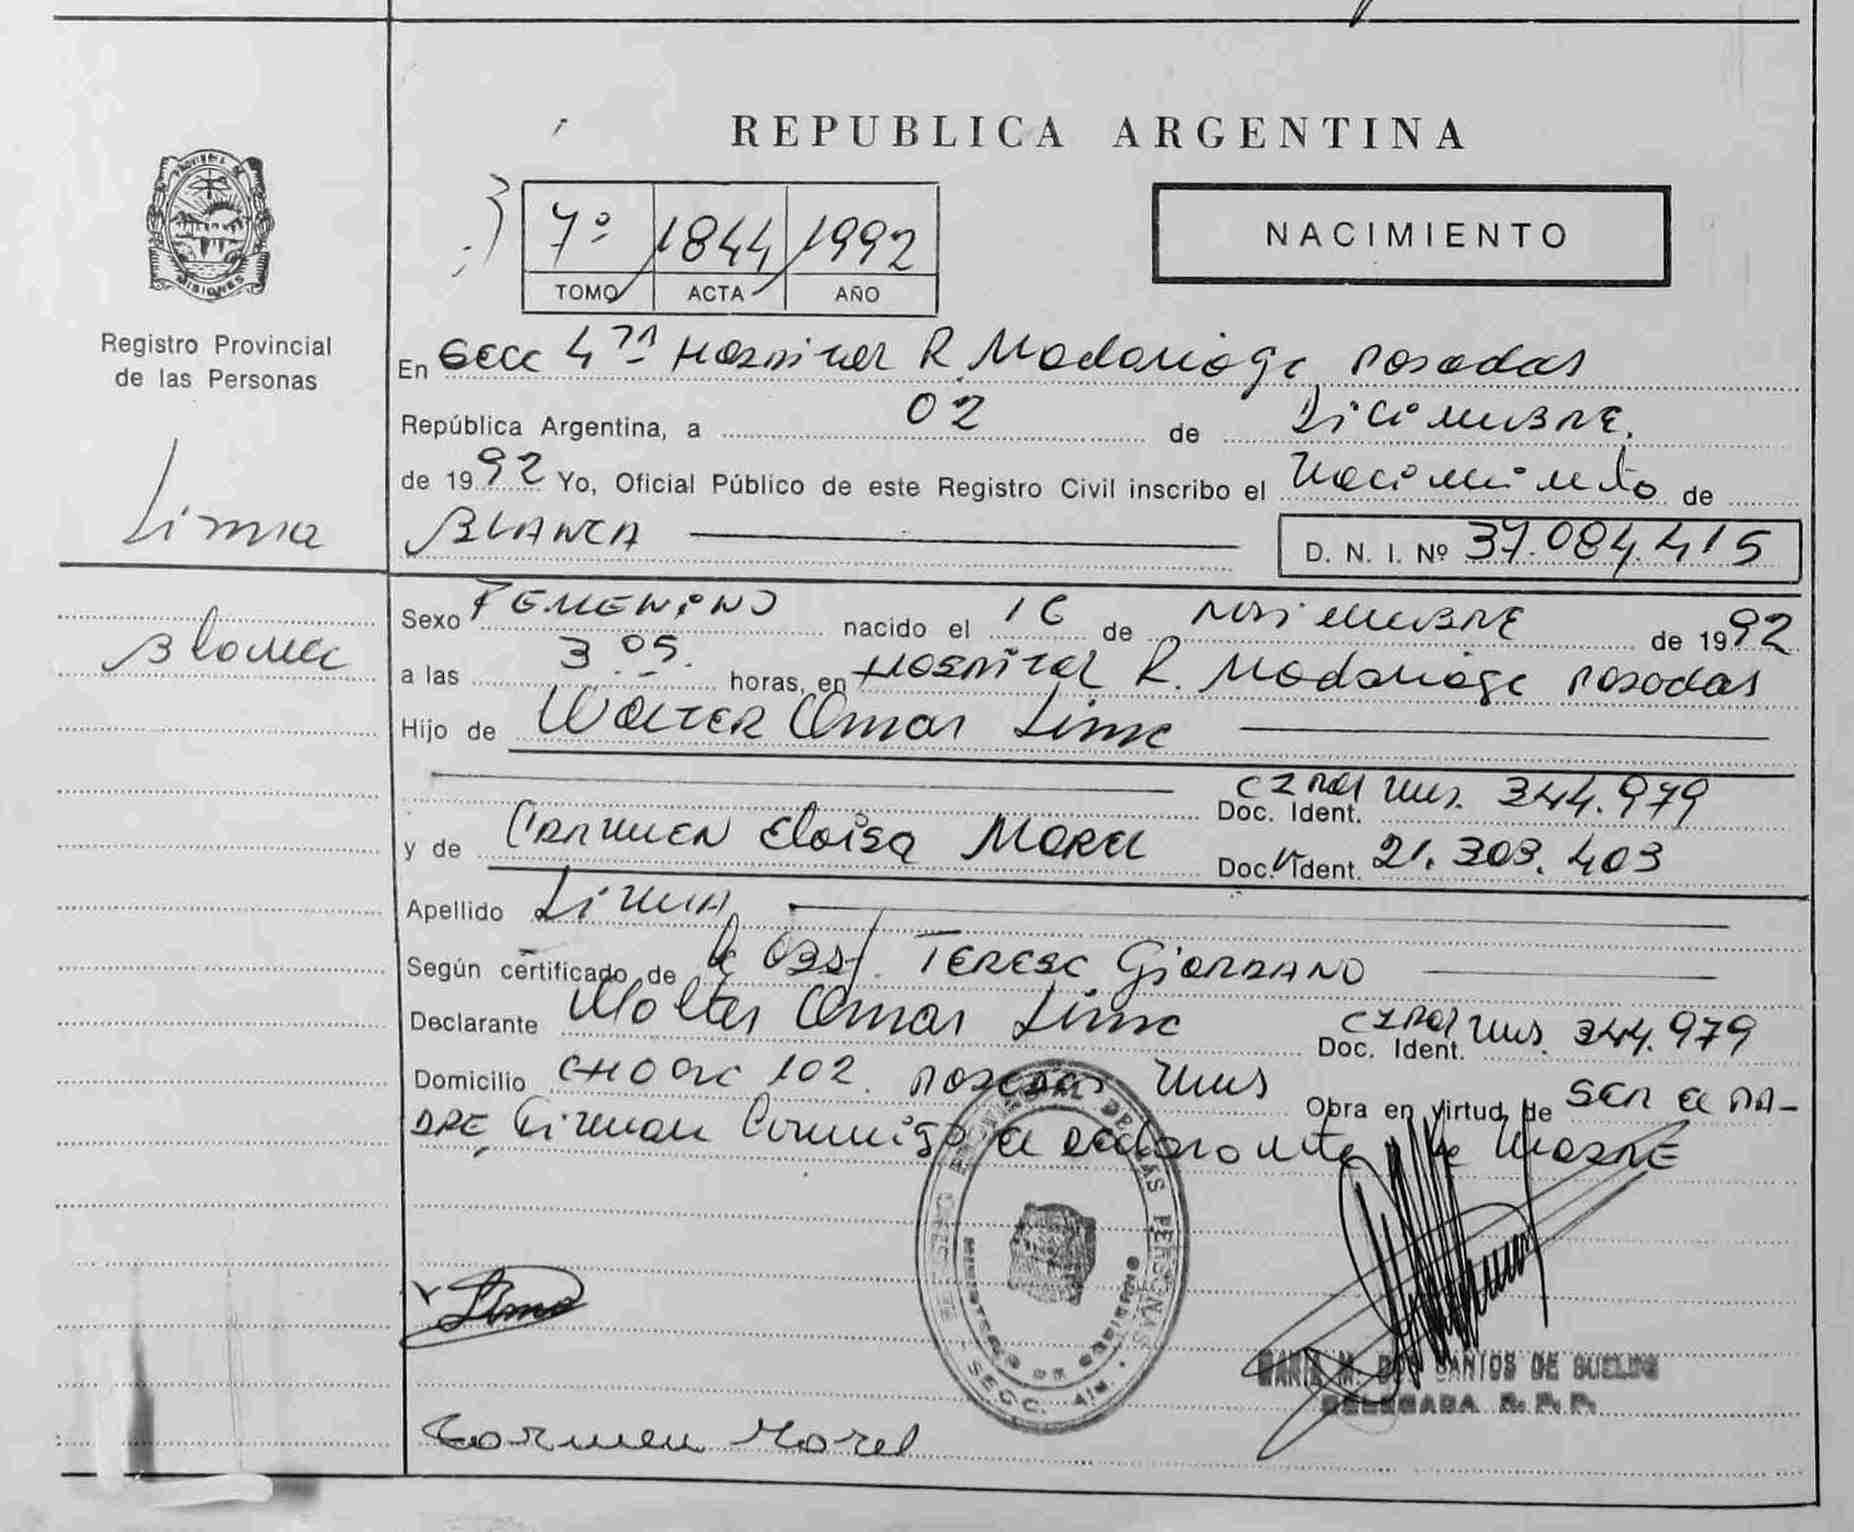 REPUBLICA ARGENTINA
PROVINCIA DE
MISIONES
Registro Provincial
de las Personas
Lima
Blanca
7º 1844 1992
TOMO ACTA AÑO
NACIMIENTO
En Secc 4ta Hospital R. Madariaga Posadas
República Argentina, a 02 de Diciembre
de 1992 Yo, Oficial Público de este Registro Civil inscribo el Nacimiento de
BLANCA D. N. I. Nº 37.084.415
Sexo FEMENINO nacido el 16 de Noviembre de 1992
a las 3 05 horas, en Hospital R. Madariaga Posadas
Hijo de Walter Omar Lima
CI Pol Mnes. 344.979
Doc. Ident.
y de Carmen Eloisa Morel Doc. Ident. 21.303.403
Apellido Lima
Según certificado de la Obst. Teresa Giordano
Declarante Walter Omar Lima CI Pol Mnes. 344.979
Doc. Ident.
Domicilio Chaq 102. Posadas Mnes Obra en virtud de Ser el Pa-
dre, Firman Conmigo el declarante y la Madre
REGISTRO PROVINCIAL DE LAS PERSONAS
MINISTERIO DE GOBIERNO
SECC. 4ta.
Lima
MARIA M. DOS SANTOS DE
DELEGADA R. P. P.
Carmen Morel